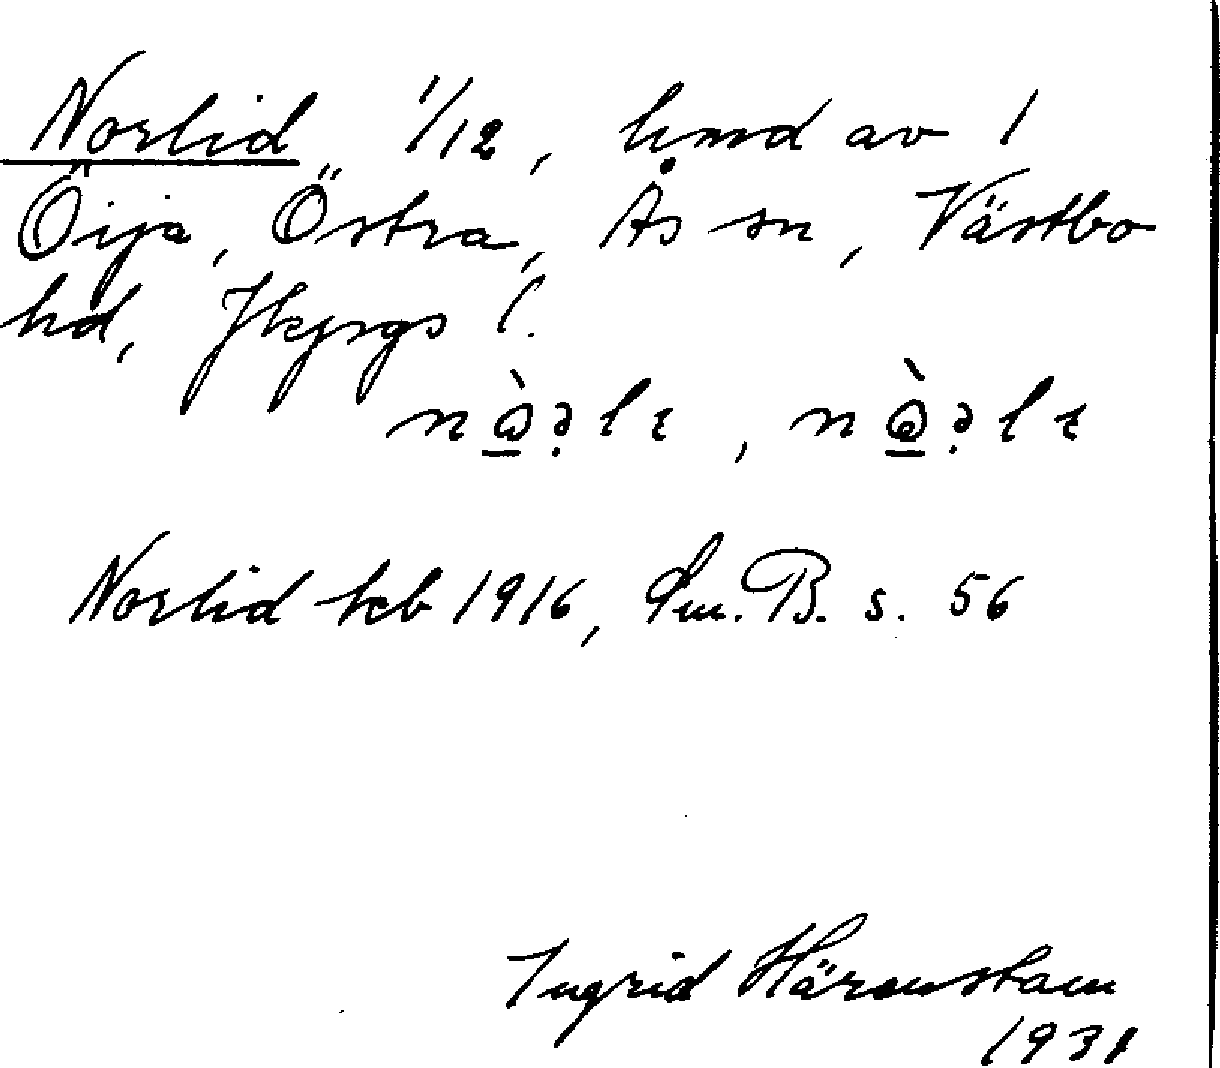 Norlid 1/12, hmd av 1
Öija, Östra, Ås sn, Västbo
hd, Jkpgs l.
Norlid kb 1916, Sm. B. s. 56
Ingrid Härenstam
1931